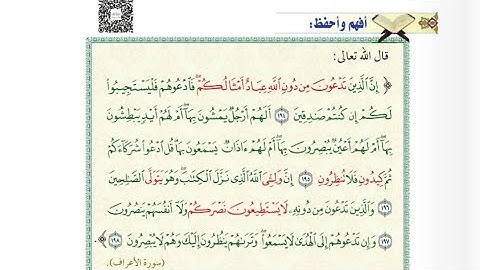 أفهم وأحفظ:
قال الله تعالى:
﴿ إِنَّ ٱلَّذِينَ تَدۡعُونَ مِن دُونِ ٱللَّهِ عِبَادٌ أَمۡثَالُكُمۡۖ فَٱدۡعُوهُمۡ فَلۡيَسۡتَجِيبُواْ
لَكُمۡ إِن كُنتُمۡ صَٰدِقِينَ ١٩٤ أَلَهُمۡ أَرۡجُلٌ يَمۡشُونَ بِهَآۖ أَمۡ لَهُمۡ أَيۡدٍ يَبۡطِشُونَ
بِهَآۖ أَمۡ لَهُمۡ أَعۡيُنٌ يُبۡصِرُونَ بِهَآۖ أَمۡ لَهُمۡ ءَاذَانٌ يَسۡمَعُونَ بِهَاۗ قُلِ ٱدۡعُواْ شُرَكَآءَكُمۡ
ثُمَّ كِيدُونِ فَلَا تُنظِرُونِ ١٩٥ إِنَّ وَلِـِّۧيَ ٱللَّهُ ٱلَّذِي نَزَّلَ ٱلۡكِتَٰبَۖ وَهُوَ يَتَوَلَّى ٱلصَّٰلِحِينَ
١٩٦ وَٱلَّذِينَ تَدۡعُونَ مِن دُونِهِۦ لَا يَسۡتَطِيعُونَ نَصۡرَكُمۡ وَلَآ أَنفُسَهُمۡ يَنصُرُونَ
١٩٧ وَإِن تَدۡعُوهُمۡ إِلَى ٱلۡهُدَىٰ لَا يَسۡمَعُواْۖ وَتَرَىٰهُمۡ يَنظُرُونَ إِلَيۡكَ وَهُمۡ لَا يُبۡصِرُونَ ١٩٨ ﴾.
(سورة الأعراف).